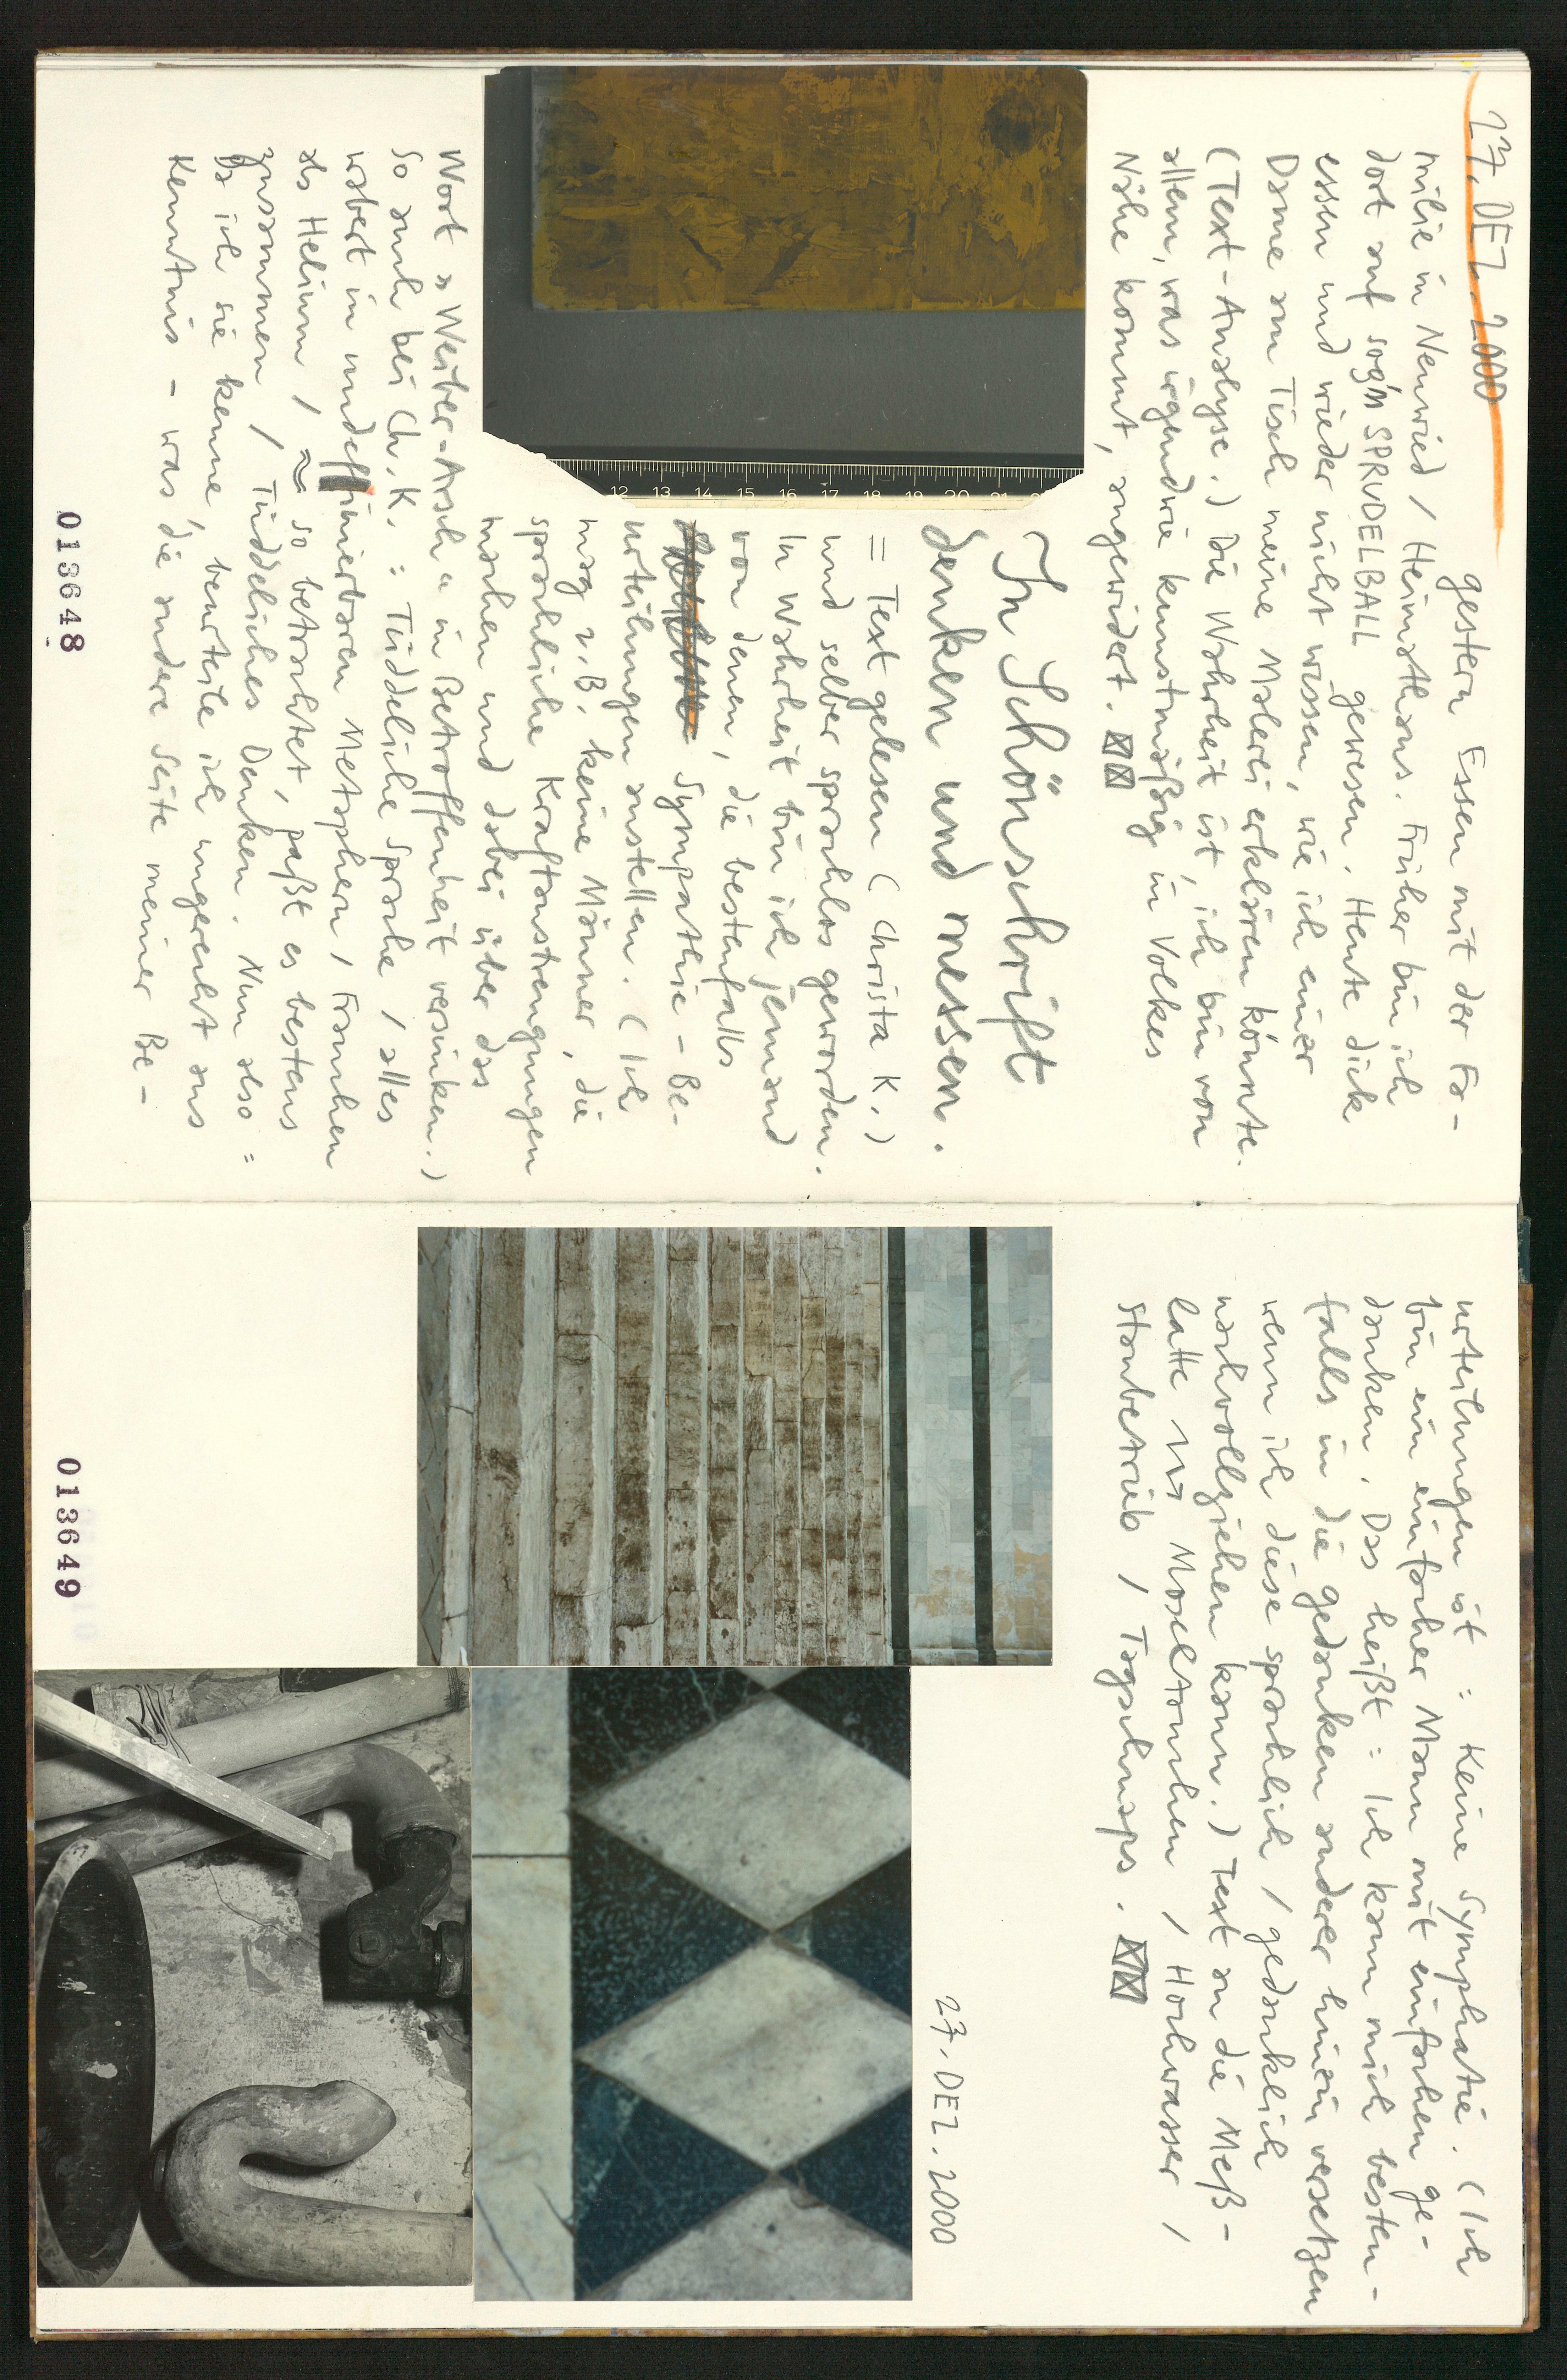 27. DEZ. 2000
gestern Essen mit der Fa-
milie in Neuwied / Heimathaus. Früher bin ich
dort auf sog'n SPRUDELBALL gewesen. Heute dick
essen und wieder nicht wissen, wie ich einer
Dame am Tisch meine Malerei erklären könnte.
(Text-Analyse.) Die Wahrheit ist, ich bin von
allem, was irgendwie kunstmäßig in Volkes
Nähe kommt, angewidert.
In Schönschrift
denken und messen.
= Text gelesen (Christa K.)
und selber sprachlos geworden.
In Wahrheit bin ich jemand
von denen, die bestenfalls
Sympathie-Be-
urteilungen anstellen. (Ich
mag z.B. keine Männer, die
sprachliche Kraftanstrengungen
machen und dabei über das
Wort »Weiber-Arsch« in Betroffenheit versinken.)
So auch bei Ch. K. : Tüddeliche Sprache / alles
wabert in undeffinierbaren Metaphern / Frauchen
als Helium / so betrachtet, paßt es bestens
zusammen / Tüddeliches Denken. Nun also =
Da ich sie kenne, beurteile ich ungerecht aus
Kenntnis - was die andere Seite meiner Be-
013648
urteilungen ist : Keine Symphatie. (Ich
bin ein einfacher Mann mit einfachen Ge-
danken. Das heißt : Ich kann mich besten-
falls in die gedanken anderer hinein versetzen
wenn ich diese sprachlich / gedanklich
nachvollziehen kann.) Text an die Meß-
latte Moseltauchen / Hochwasser /
Staubetrieb / Tagschnaps.
27. DEZ. 2000
12 13 14 15 16 17 18 19 20 21
013649